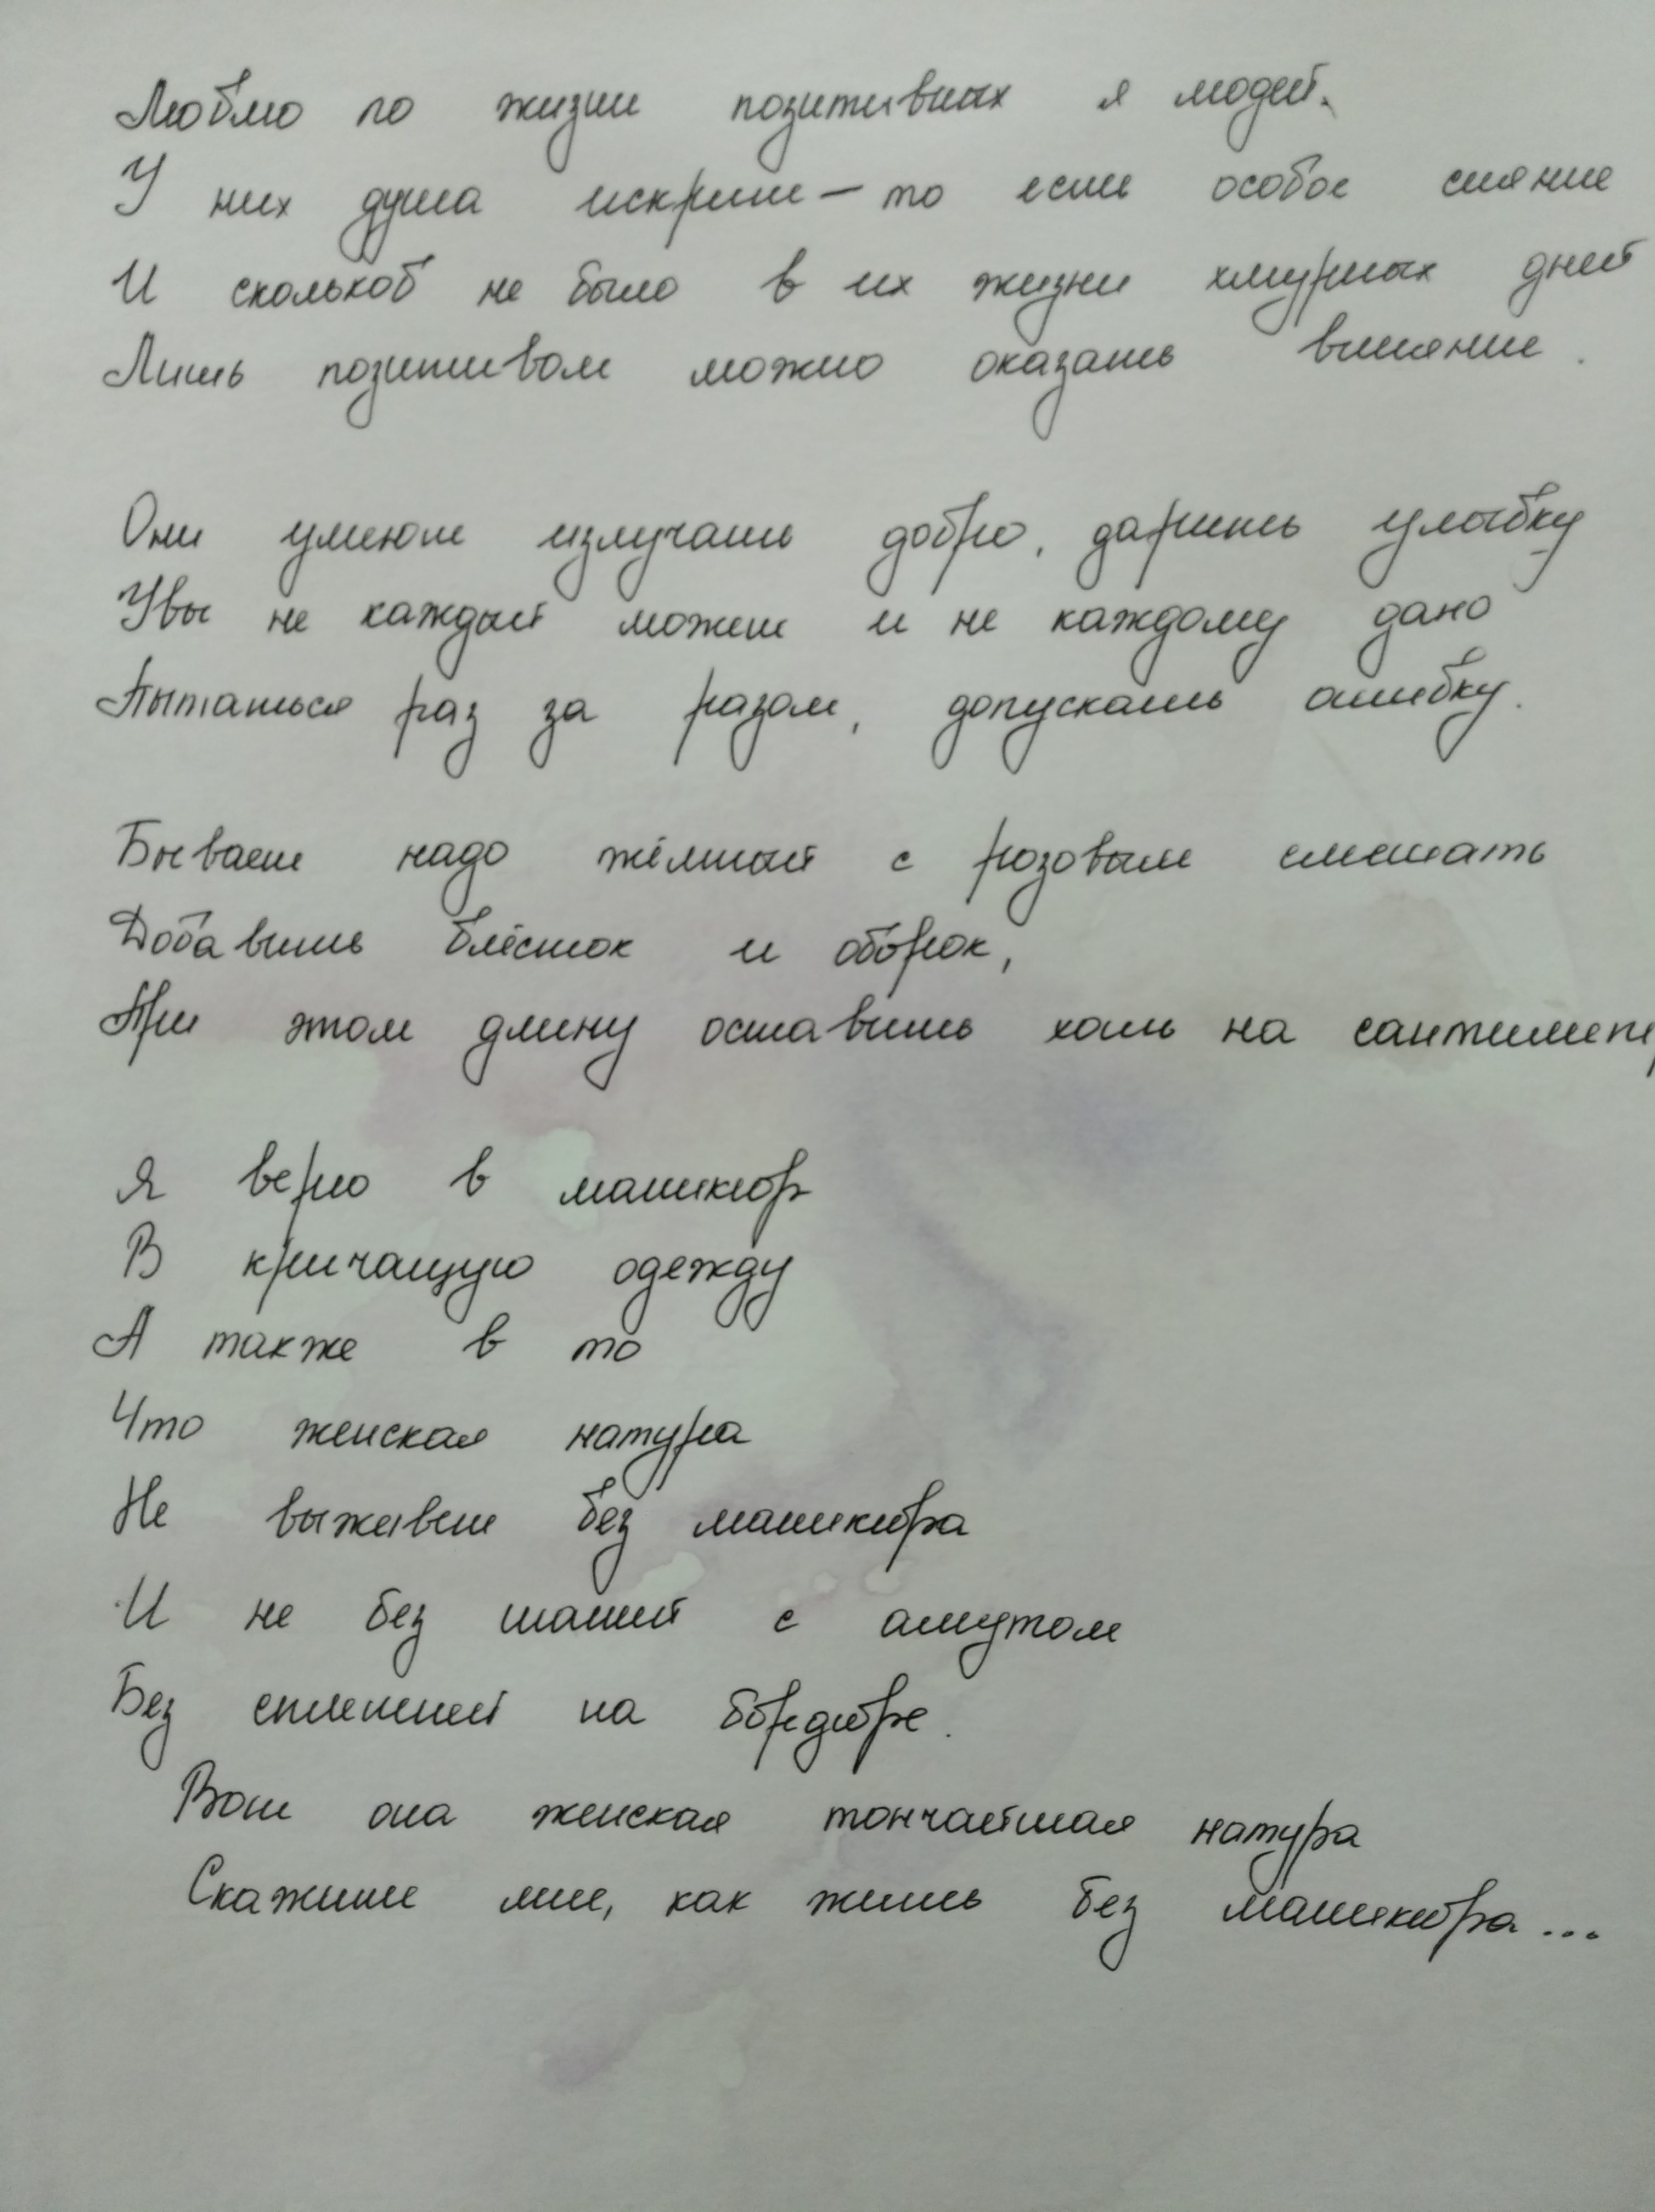 Люблю по жизни позитивных я людей.
У них душа искрит – то есть особое сияние
И сколькоб не было в их жизни хмурных дней
Лишь позитивом можно оказать влияние.
Они умеют излучать добро, дарить улыбку
Увы не каждый может и не каждому дано
Пытаться раз за разом, допускать ошибку.
Бывает надо жёлтый с розовым смешать
Добавить блёсток и оборок,
При этом длину оставить хоть на сантиметр
Я верю в маникюр
В кричащую одежду
А также в то
Что женская натура
Не выживет без маникюра
И не без шашней с амутом
Без сплетней на бордюре.
Вот она женская тончайшая натура
Скажите мне, как жить без маникюра...